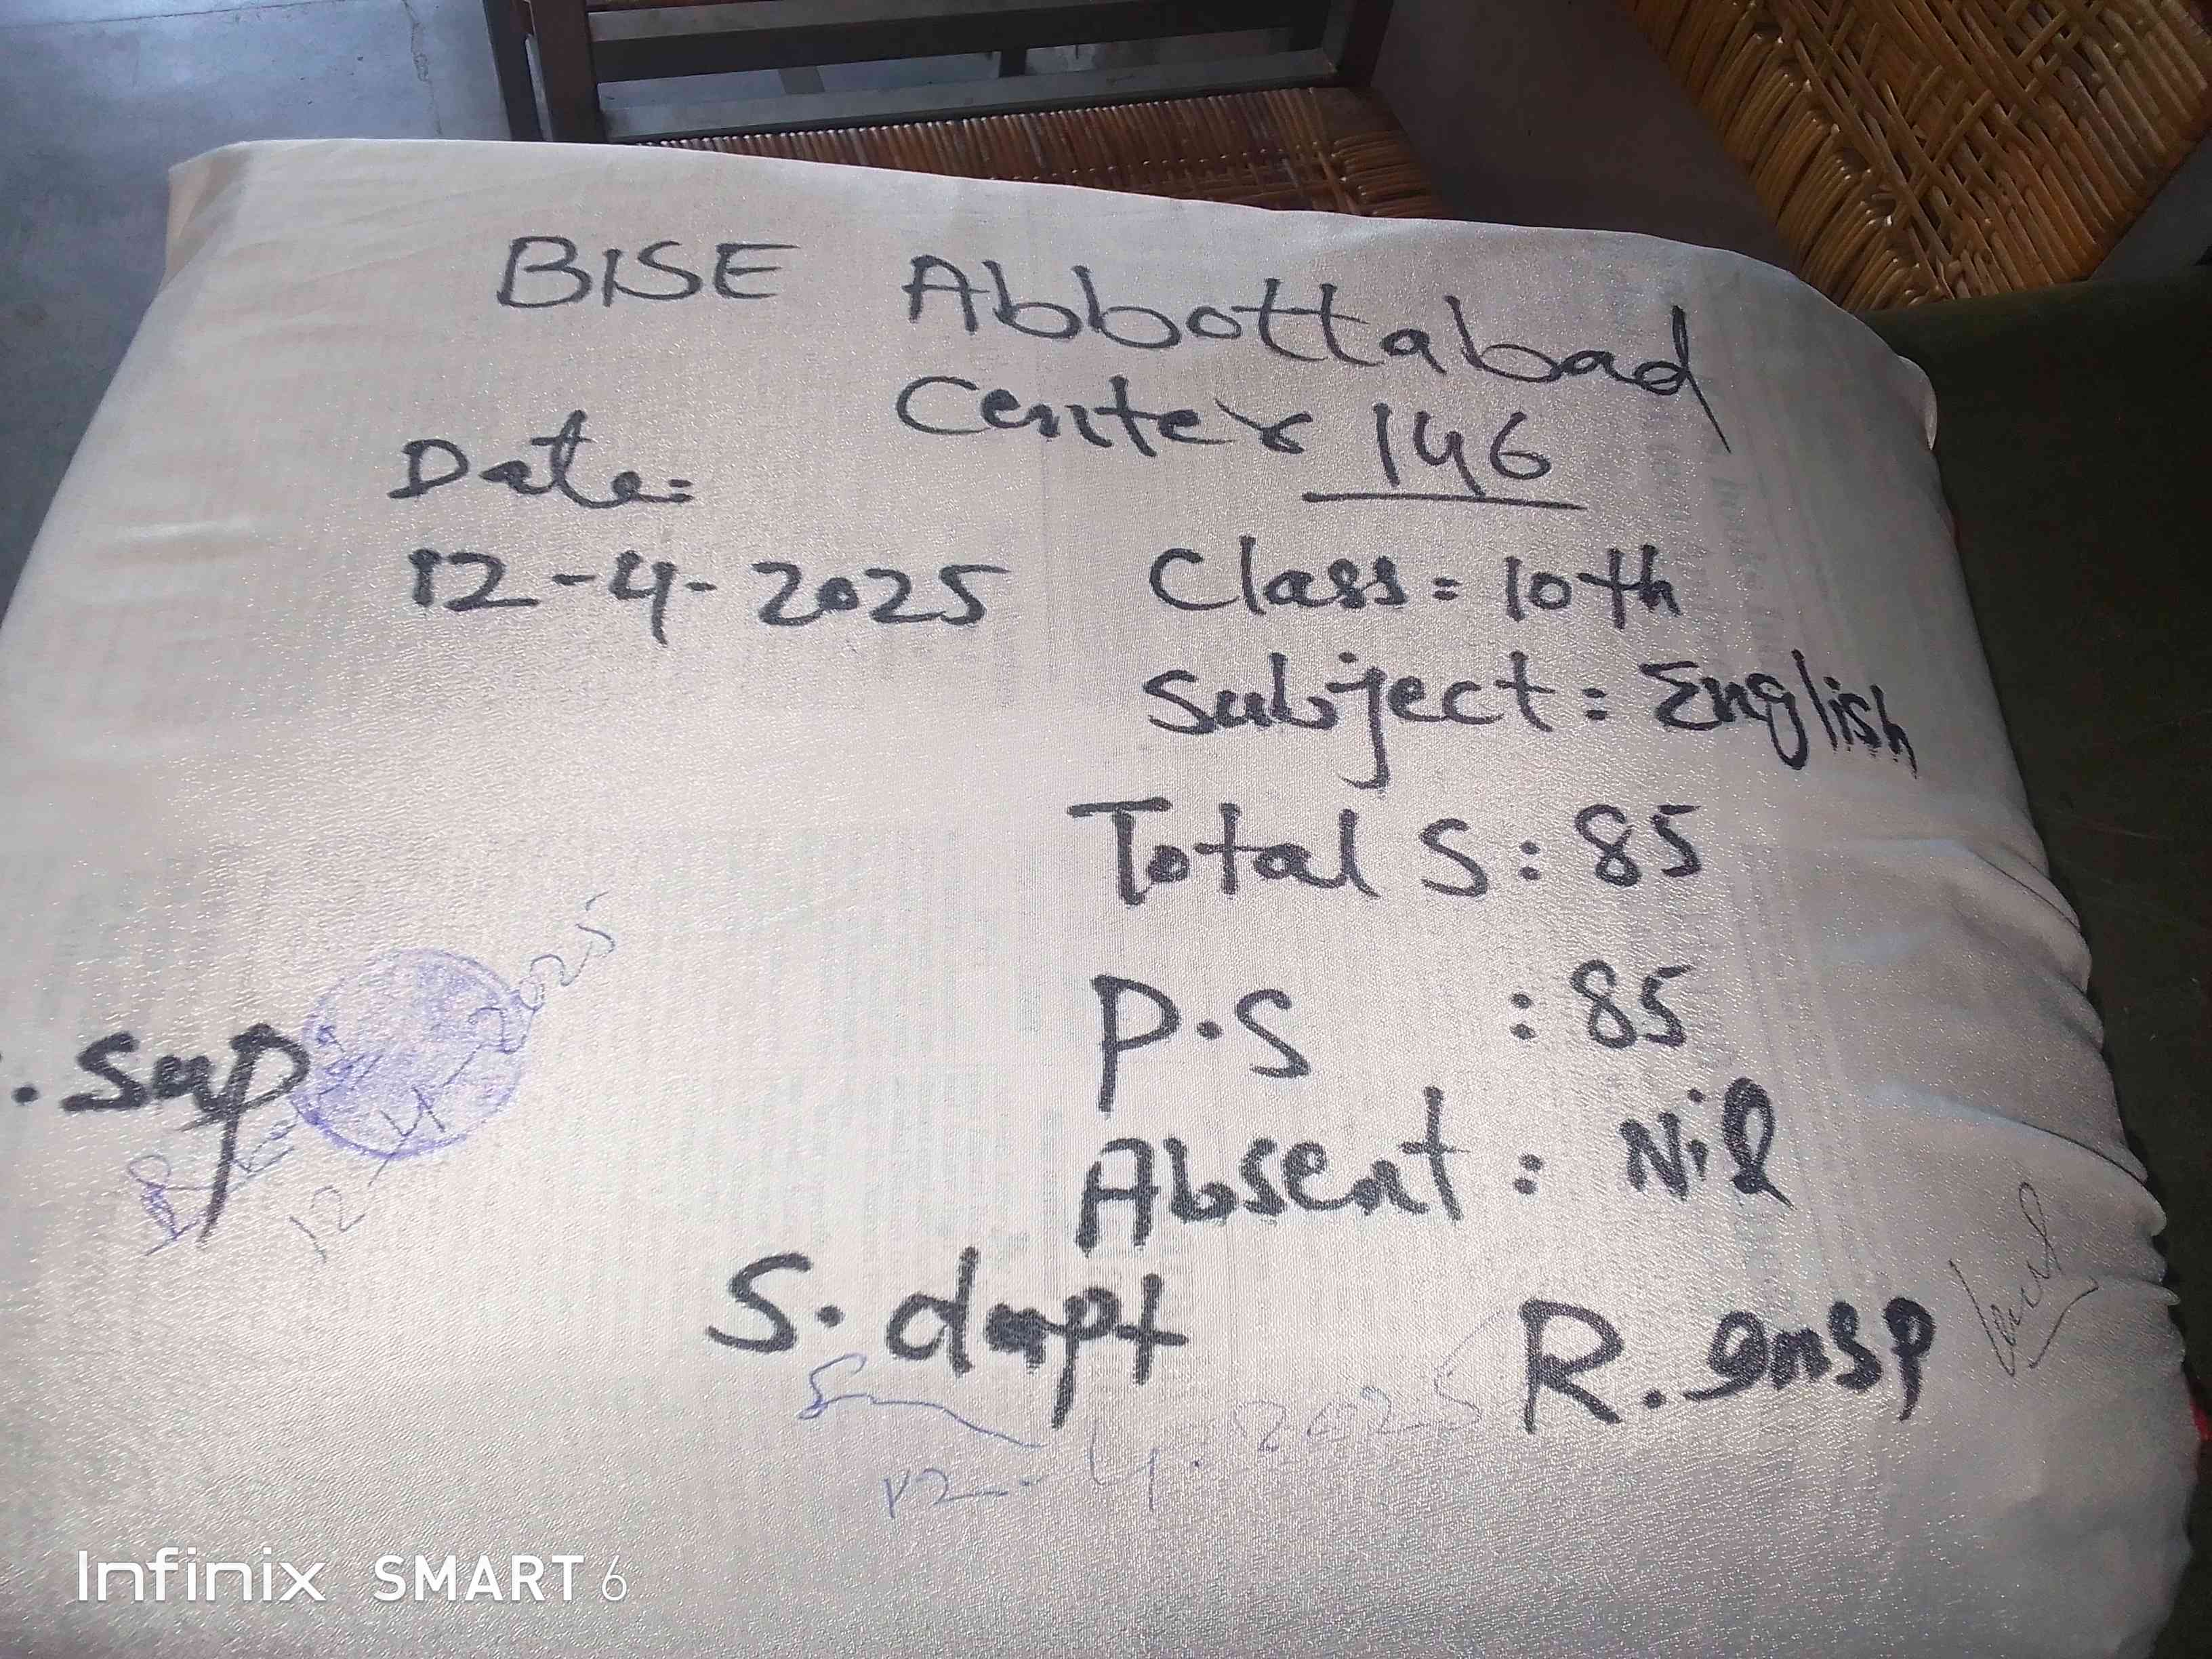 BISE Abbottabad
Center 146
Date:
12-4-2025
Class = 10th
Subject: English
Total S: 85
P.S : 85
Absent: Nil
. Sup
12-4-2025
S. dupt
12-4-2025
R. Insp
Infinix SMART 6